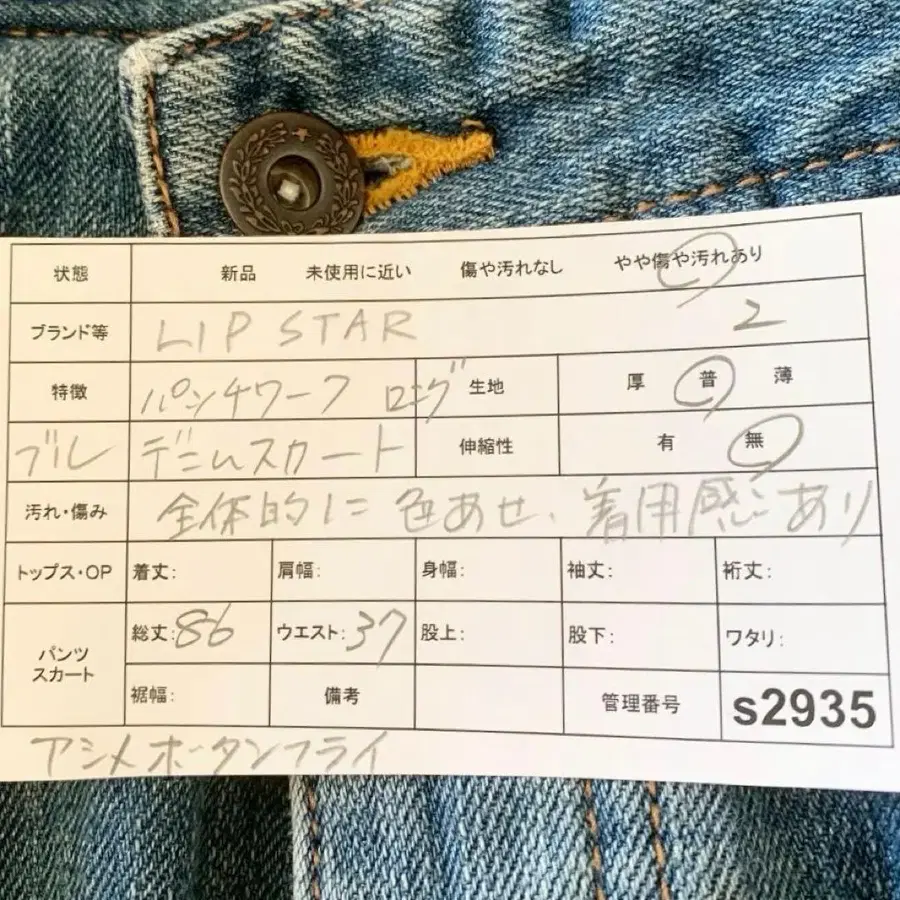 状態 新品 未使用に近い 傷や汚れなし やや傷や汚れあり
ブランド等 LIP STAR 2
特徴 パンチワーク ロング 生地 厚 普 薄
ブルー デニムスカート 伸縮性 有 無
汚れ・傷み 全体的に色あせ、着用感あり
トップス・OP 着丈: 肩幅: 身幅: 袖丈: 裄丈:
パンツ スカート 総丈:86 ウエスト:37 股上: 股下: ワタリ:
裾幅: 備考 管理番号 s2935
アシメボータンフライ